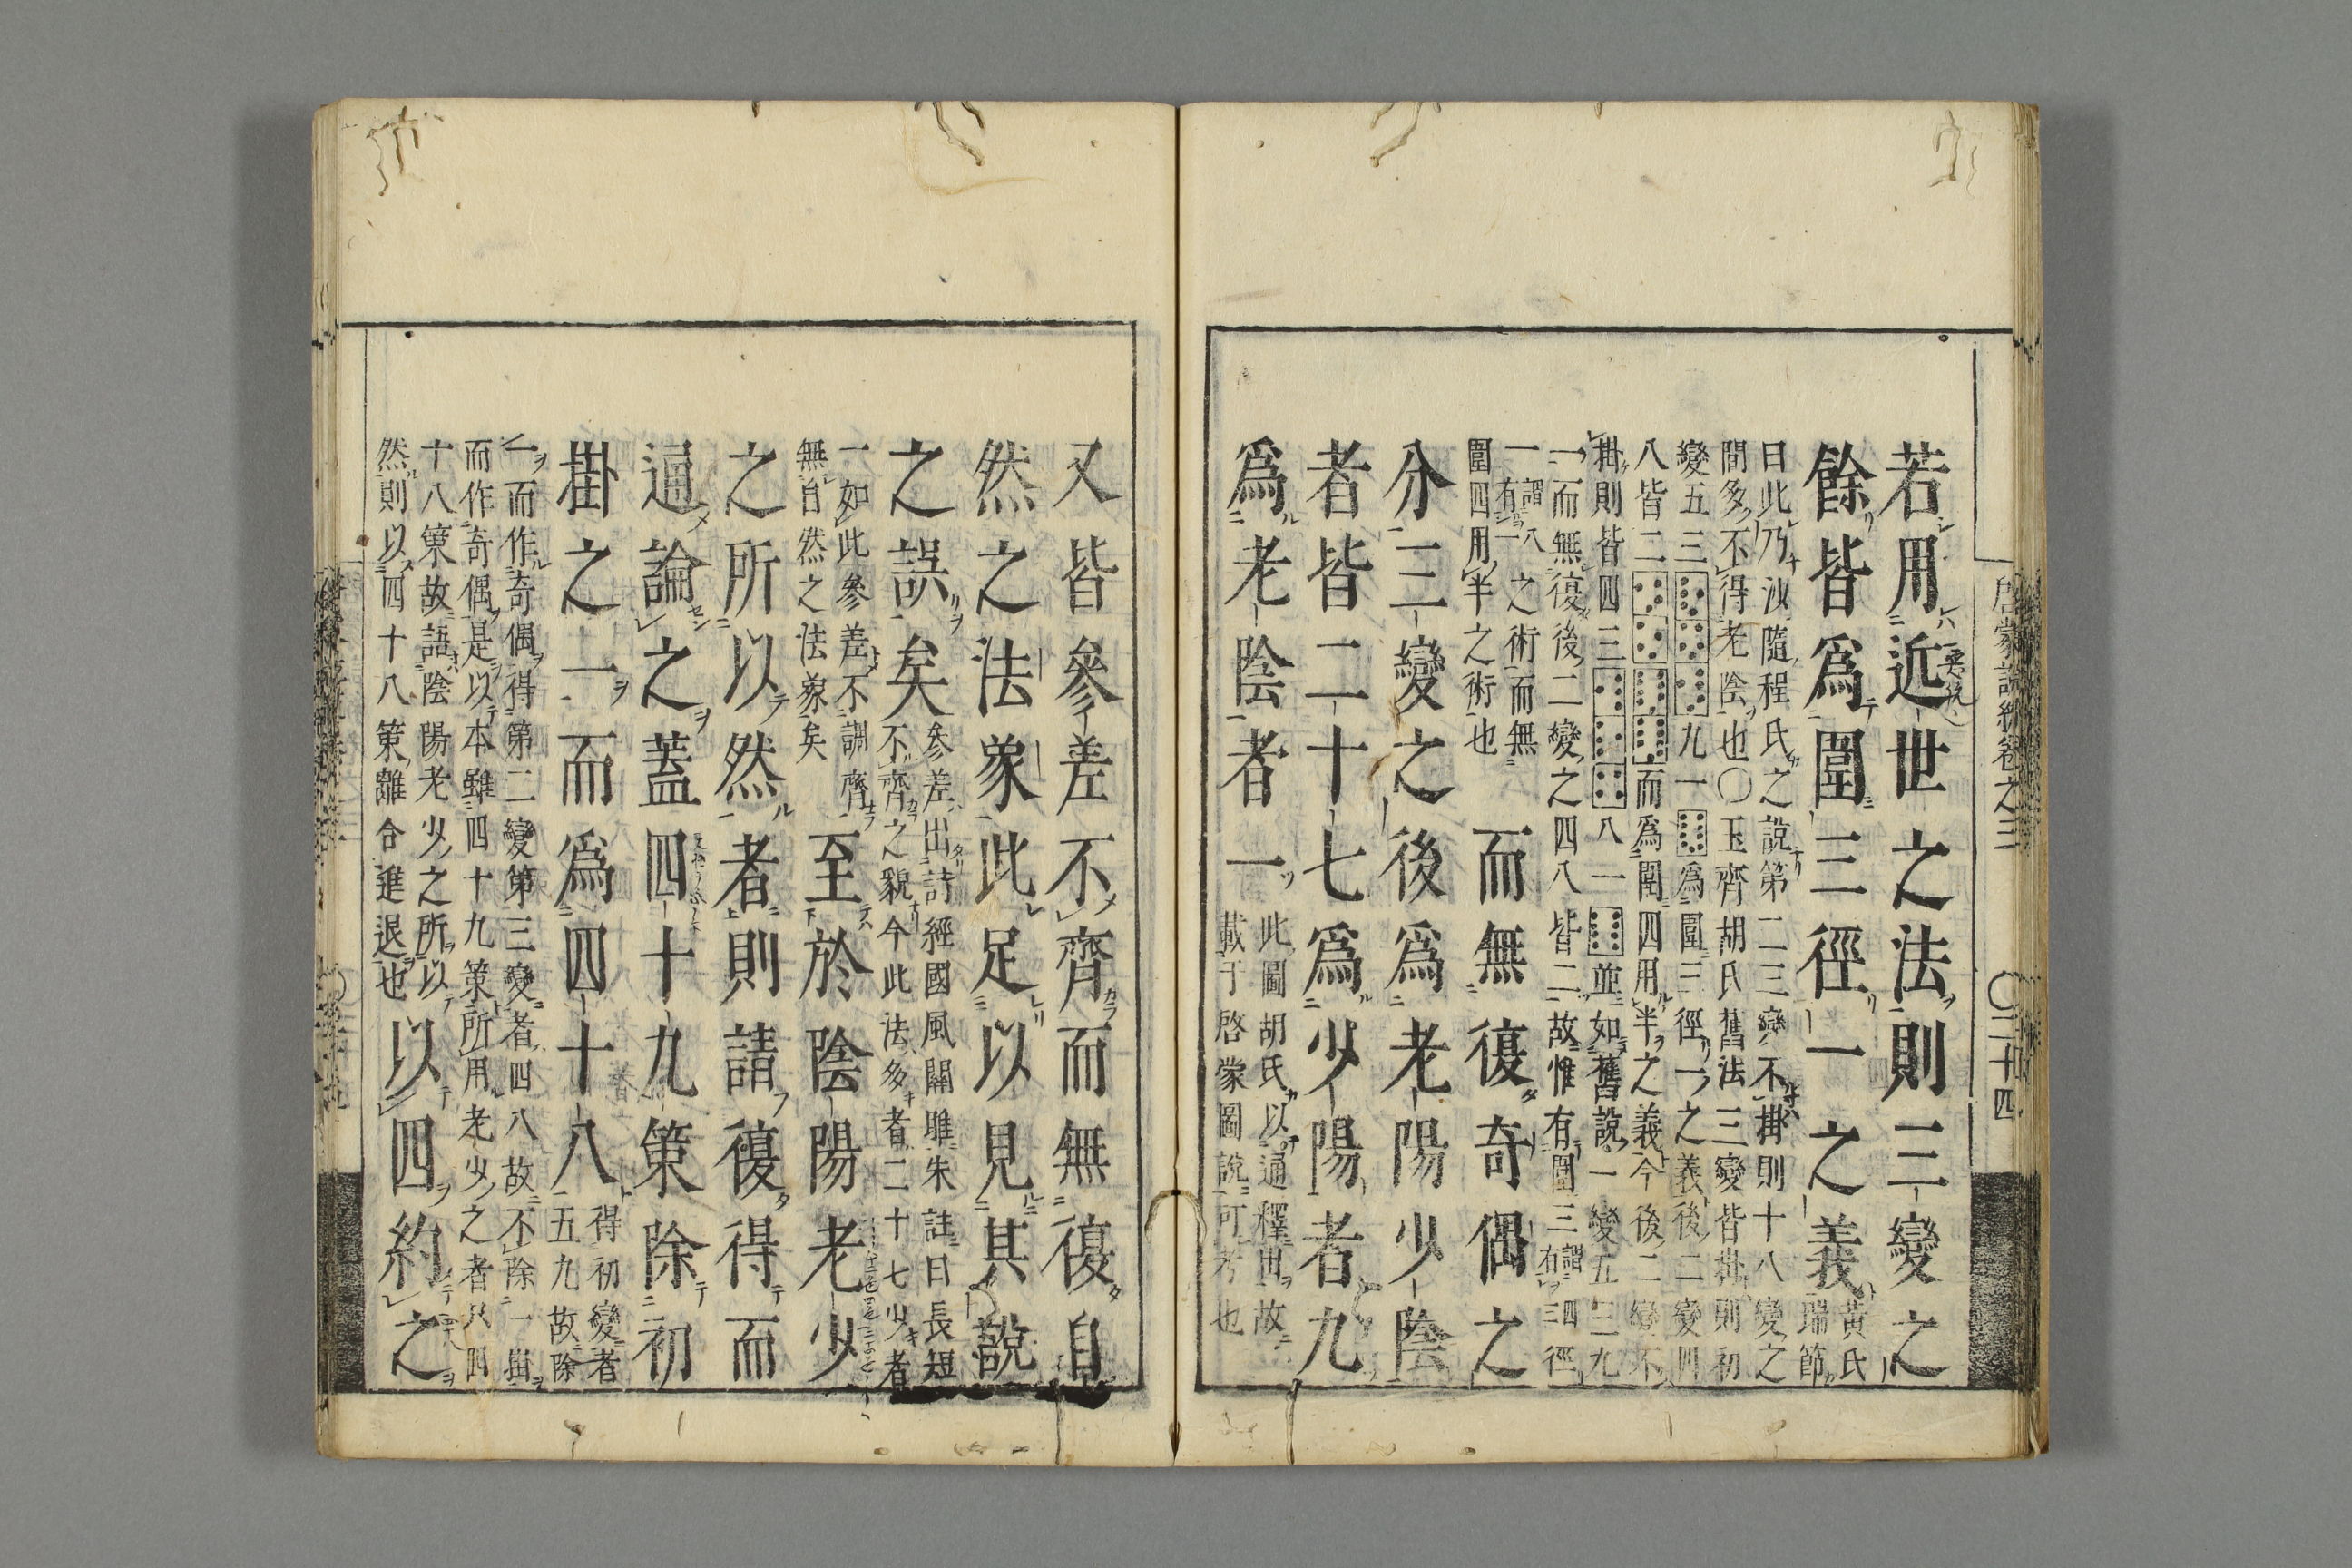 若用近世之法則三變之
餘皆爲圍三徑一之義黃氏
瑞節
曰此乃汝隨程氏之說第二三變不掛則十八變之
間多不得老陰也〇玉齊胡氏舊法三變皆掛則初
變五三九一爲圍三徑一之義後二變四
八皆二而爲圍四用半之義今後二變不
掛則皆四三八一並如舊說一變五三九
一而無復後二變之四八皆二故惟有圍三謂四有三徑
一謂八有一之術而無
圍四用半之術也
而無復奇偶之
分三變之後爲老陽少陰
者皆二十七爲少陽者九
爲老陰者一此圖胡氏以通釋世故
載于啓蒙圖說可考也
又皆參差不齊而無復自
然之法象此足以見其說
之誤矣參差出詩經國風關雎朱註曰長短
不齊之貌今此法多者二十七少者
一如此參差不調齊
無自然之法象矣
至於陰陽老少
之所以然者則請復得而
通論之蓋四十九策除初
掛之一而爲四十八得初變者
五九故除
一而作奇偶得第二變第三變者四八故不除一掛
而作奇偶是以本雖四十九策所用老少之者只四
十八策故語陰陽老少之所以
然則以四十八策離合進退也
以四約之
啓蒙說統卷之三
〇二十四